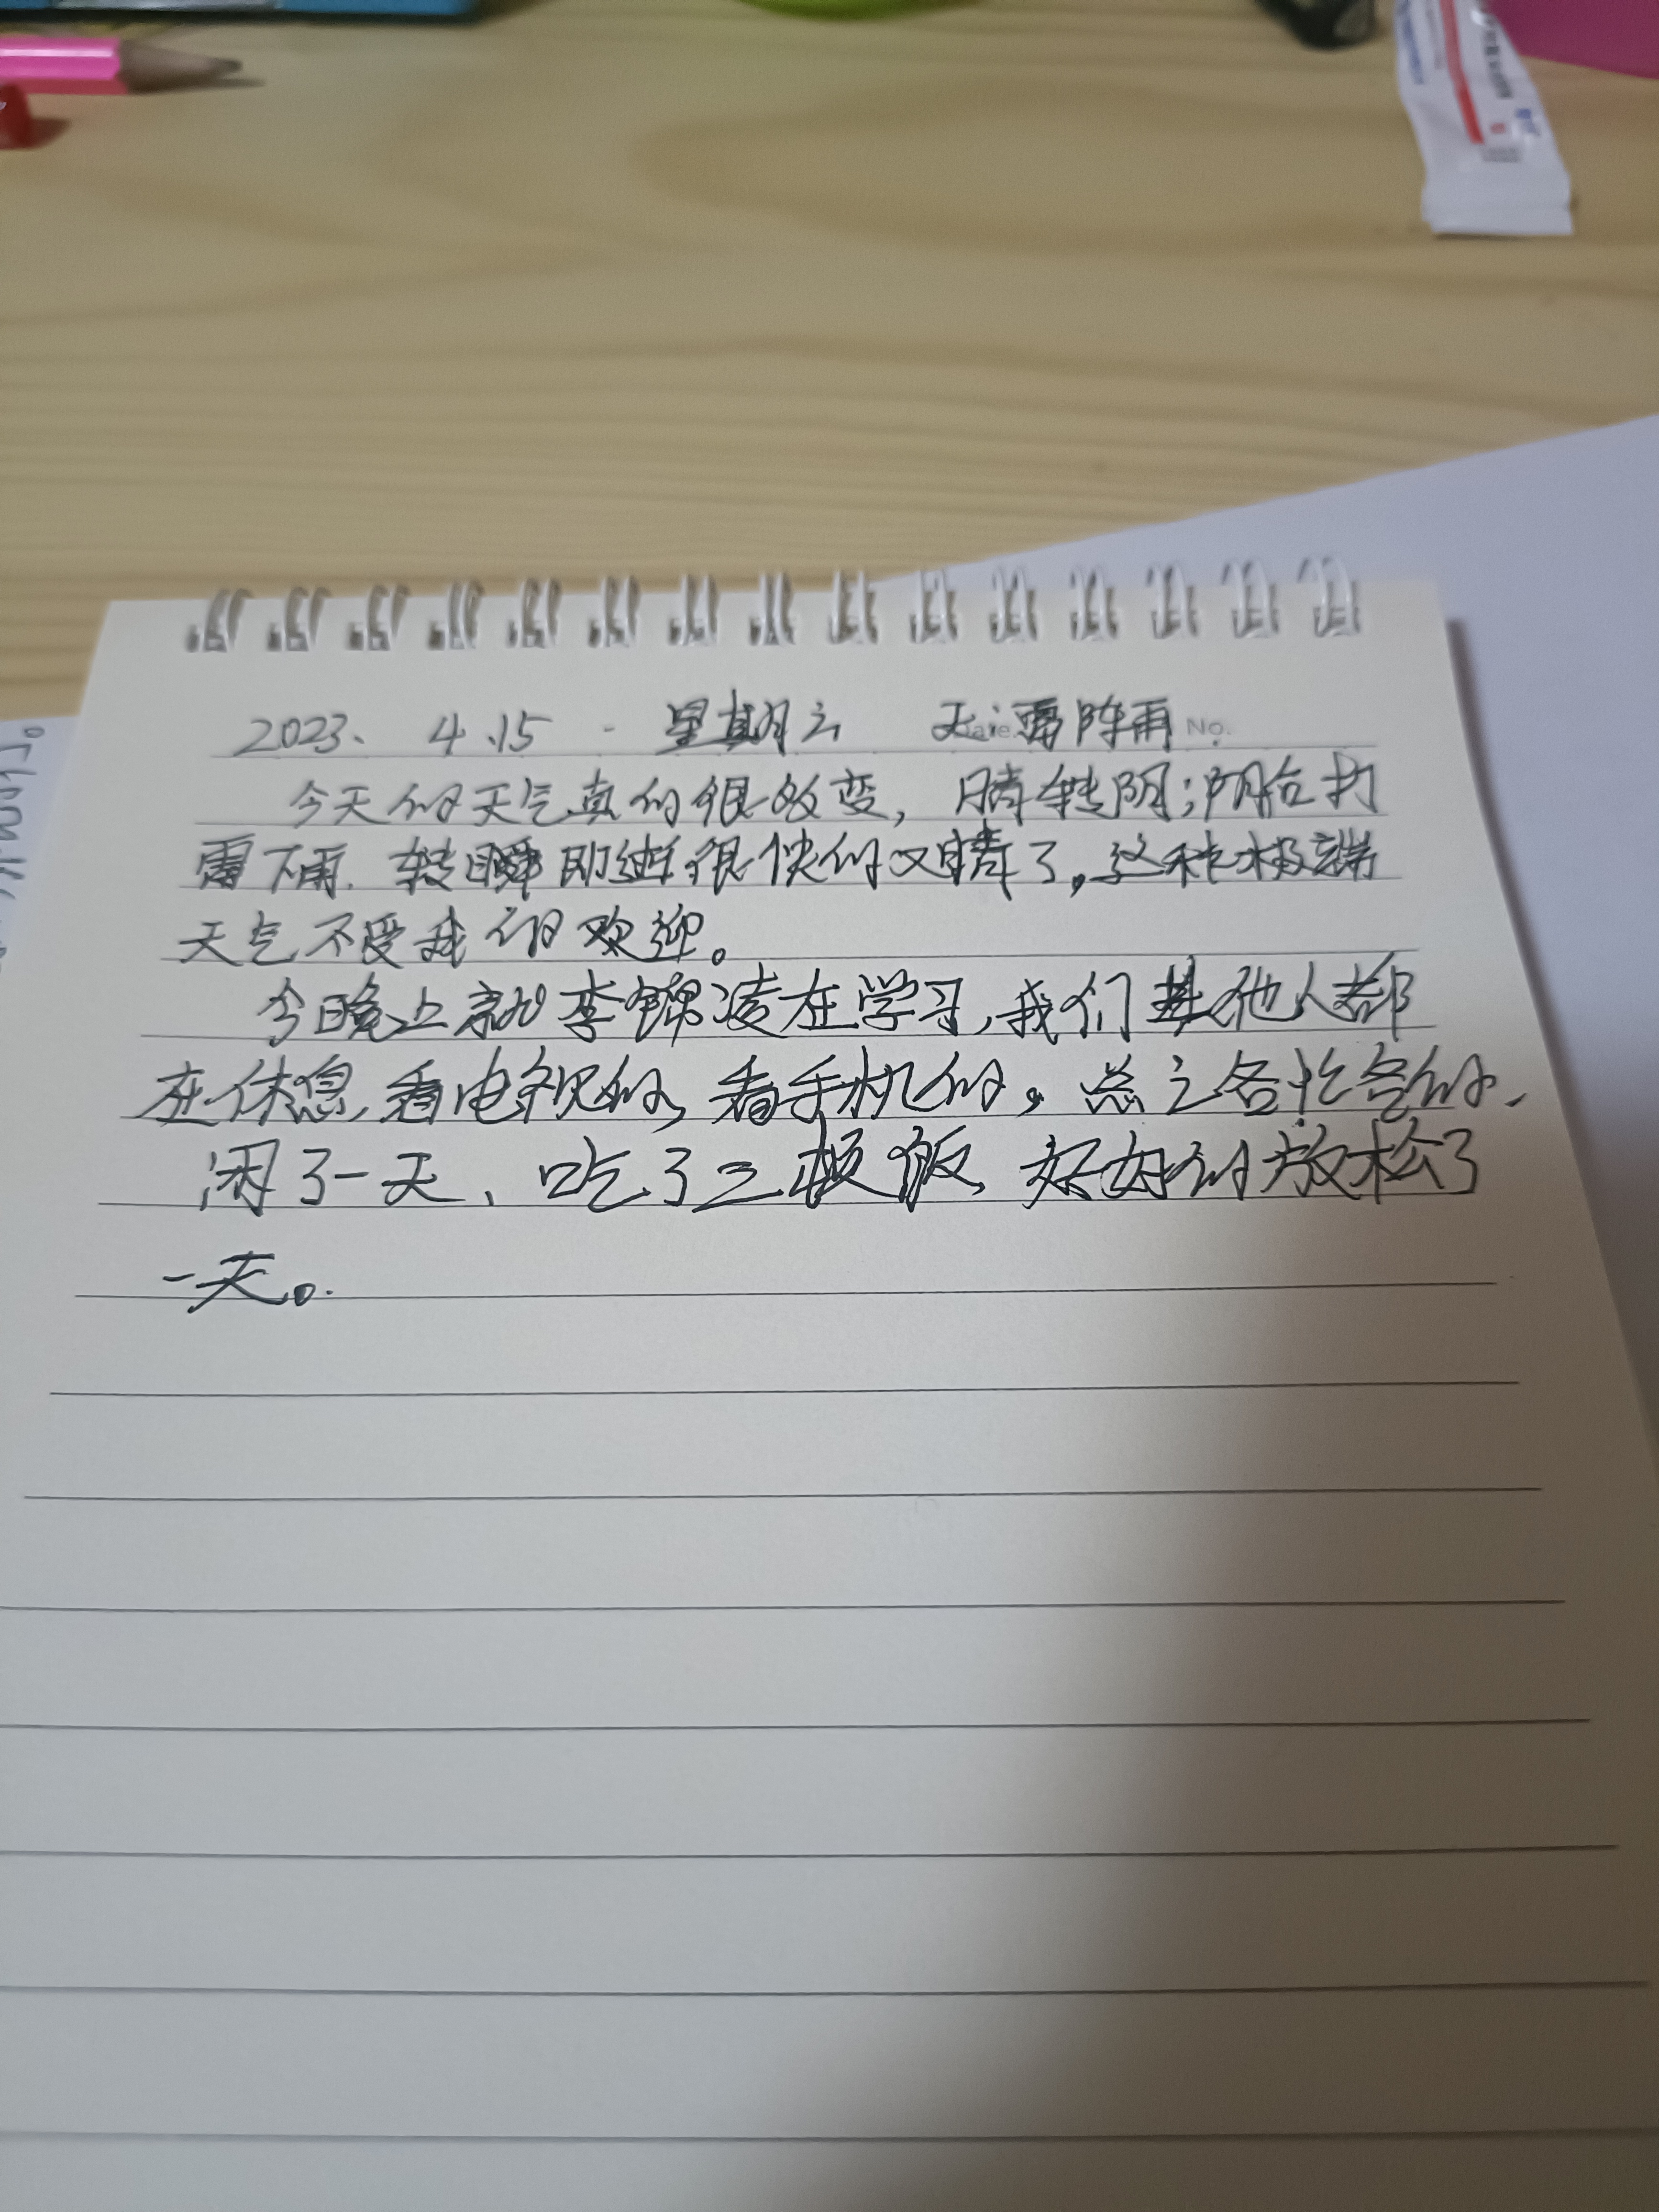 2023、 4.15 . 星期六 天: 雷阵雨 No.
今天的天气真的很改变, 晴转阴;阴后打
雷下雨. 转瞬即逝很快的又晴了,这种极端
天气不受我们欢迎。
今日晚上就李锦凌在学习,我们其他人都
在休息,看电视的,看手机的。总之各忙各的、
闲了一天、吃了三顿饭,好好的放松了
一天。